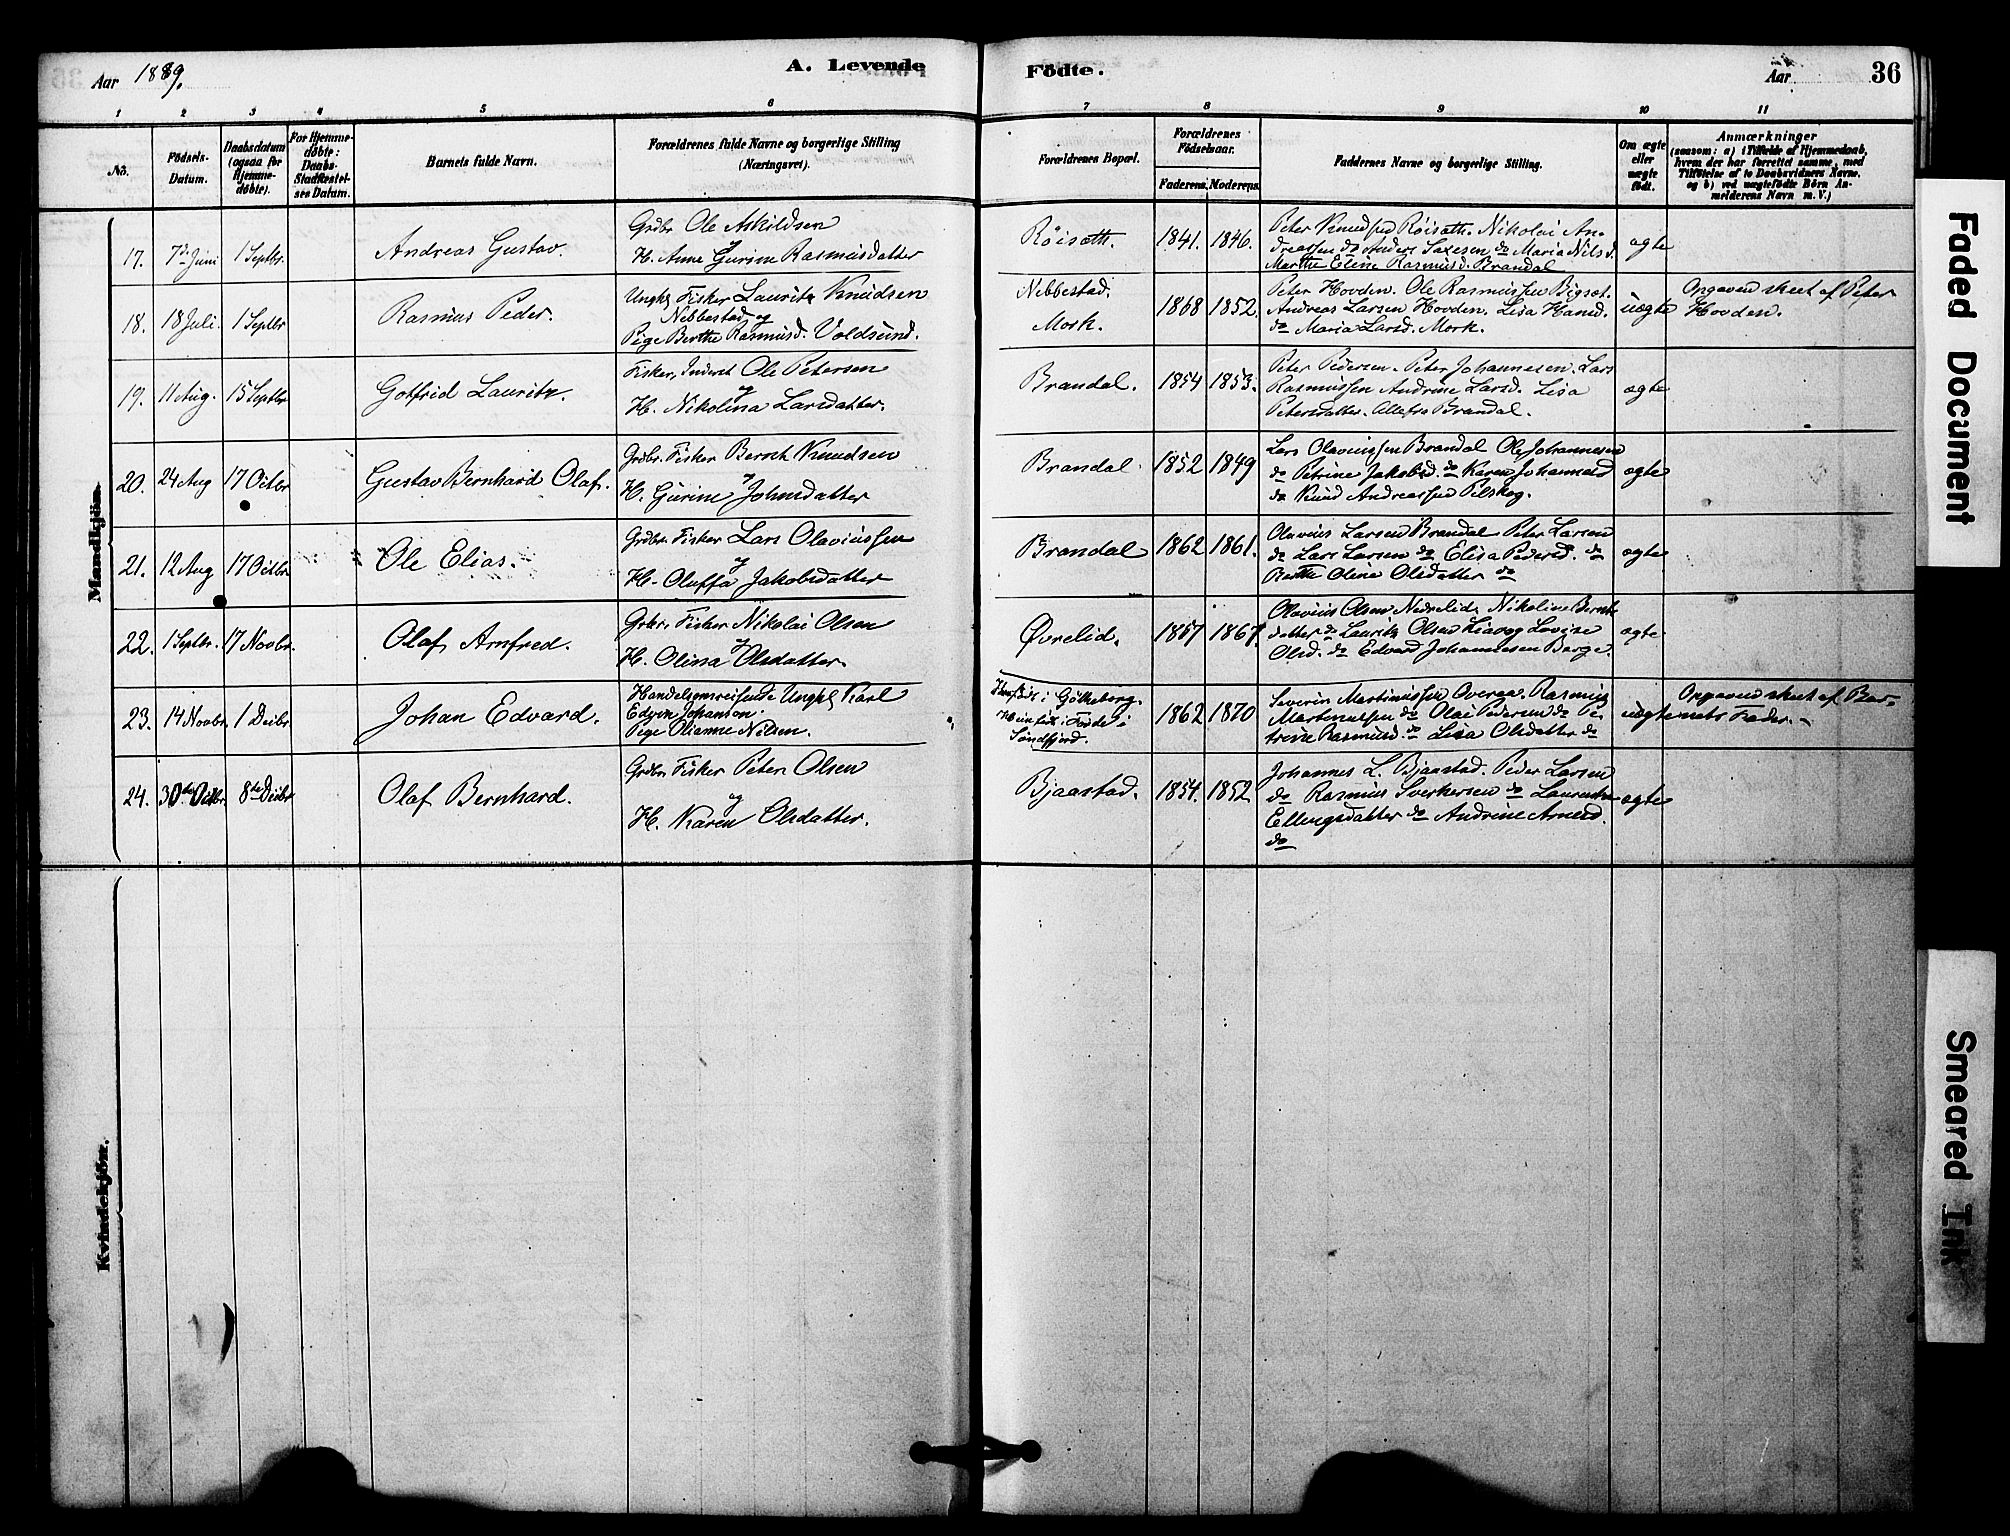 Aar 1889.
A. Levende
Födte.
Aar
36
1 2 3 4 5 6 7 8 9 10 11
No.
Födsels-
Datum.
Daabsdatum
(ogsaa for
Hjemme-
döbte).
For Hjemme-
döbte:
Daabs-
Stadfæstel-
ses Datum.
Barnets fulde Navn.
Forældrenes fulde Navne og borgerlige Stilling
(Næringsvei).
Forældrenes Bopæl.
Forældrenes
Födselsaar.
Faderens. Moderens.
Faddernes Navne og borgerlige Stilling.
Om ægte
eller
uægte
födt.
Anmærkninger
(saasom: a) i Tilfælde af Hjemmedaab,
hvem der har forrettet samme, med
Tilföielse af to Daabsvidners Navne.
og b) ved uægtefödte Börn An-
melderens Navn m. V.)
Mandkjön.
17. 7de Juni 1 Septbr. Andreas Gustav.
Grdbr. Ole Askildsen
og
H. Anne Gurine Rasmusdatter
Röisæth. 1841. 1846.
Peter Knudsen Röisæth. Nikolai An-
dreassen do Anders Saxesen do Maria Nilsd.
Marthe Eline Rasmusd. Brandal
ægte
18. 18 Juli. 1 Septbr Rasmus Peder.
Ungk. Fisker Lauritz Knudsen
Nibbestad og
Pige Berthe Rasmusd. Voldsund.
Nibbestad.
Mork.
1868 1852.
Peter Hovden. Ole Rasmussen Bigset.
Andreas Larsen Hovden. Lisa Hansd.
do Maria Larsd. Mork.
uægte
Opgaven skeet af Peter
Hovden.
19. 11 Aug. 15 Septbr Gotfrid Lauritz.
Fisker, Inderst Ole Petersen
og
H. Nikolina Larsdatter.
Brandal. 1854 1853.
Peter Pedersen. Peter Johannesen. Lars
Rasmussen Andrine Larsd. Lisa
Petersdatter. Alle fra Brandal.
ægte
20. 24 Aug 17 Octbr Gustav Bernhard Olaf.
Grdbr. Fisker Bernt Knudsen
og
H. Gurine Johnsdatter
Brandal. 1852 1849
Lars Olavinssen Brandal Ole Johannesen
do Petrine Jakobsd. do Karen Johannesd
do Knud Andreassen Pilskog.
ægte
21. 12 Aug 17 Octbr. Ole Elias.
Grdbr. Fisker Lars Olaviussen
og
H. Oluffa Jakobsdatter
Brandal 1862 1861.
Olavius Larsen Brandal Peter Larsen
do Lars Larsen do Elisa Pedersd. do
Berthe Oline Olsdatter do
ægte
22. 1 Septbr. 17 Novbr. Olaf Arnfred.
Grbr. Fisker Nikolai Olsen
og
H. Olina Olsdatter.
Øvrelid. 1857 1867.
Olavius Olsen Nedrelid. Nikoline Bernt-
datter do Lauritz Olsen Liavog Lovise
Olsd. do Edvard Johannesen Berge.
ægte
23. 14 Novbr. 1 Decbr. Johan Edvard.
Handelsreisende Ungk. Karl
Edvin Johanson.
Pige Olianne Nilsen.
i Götheborg.
Hun i Förde i
Söndfjord.
1862 1870
Severin Martinussen Overaa. Rasmus
Martinussen do Olai Pedersen do Pe-
trine Rasmusd. do Lisa Olsdatter do
uægte
Opgaven skeet af Bar-
nets Fader.
24. 30te Octbr. 8de Decbr Olaf Bernhard.
Grdbr Fisker Peter Olsen
og
H. Karen Olsdatter.
Bjaastad. 1854. 1852
Johannes L. Bjaastad. Peder Larsen
do Rasmus Sverkersen do Laurentse
Ellingsdatter do Andrine Arnesd.
do
ægte
Kvindekjön.
Faded Document
Smeared Ink